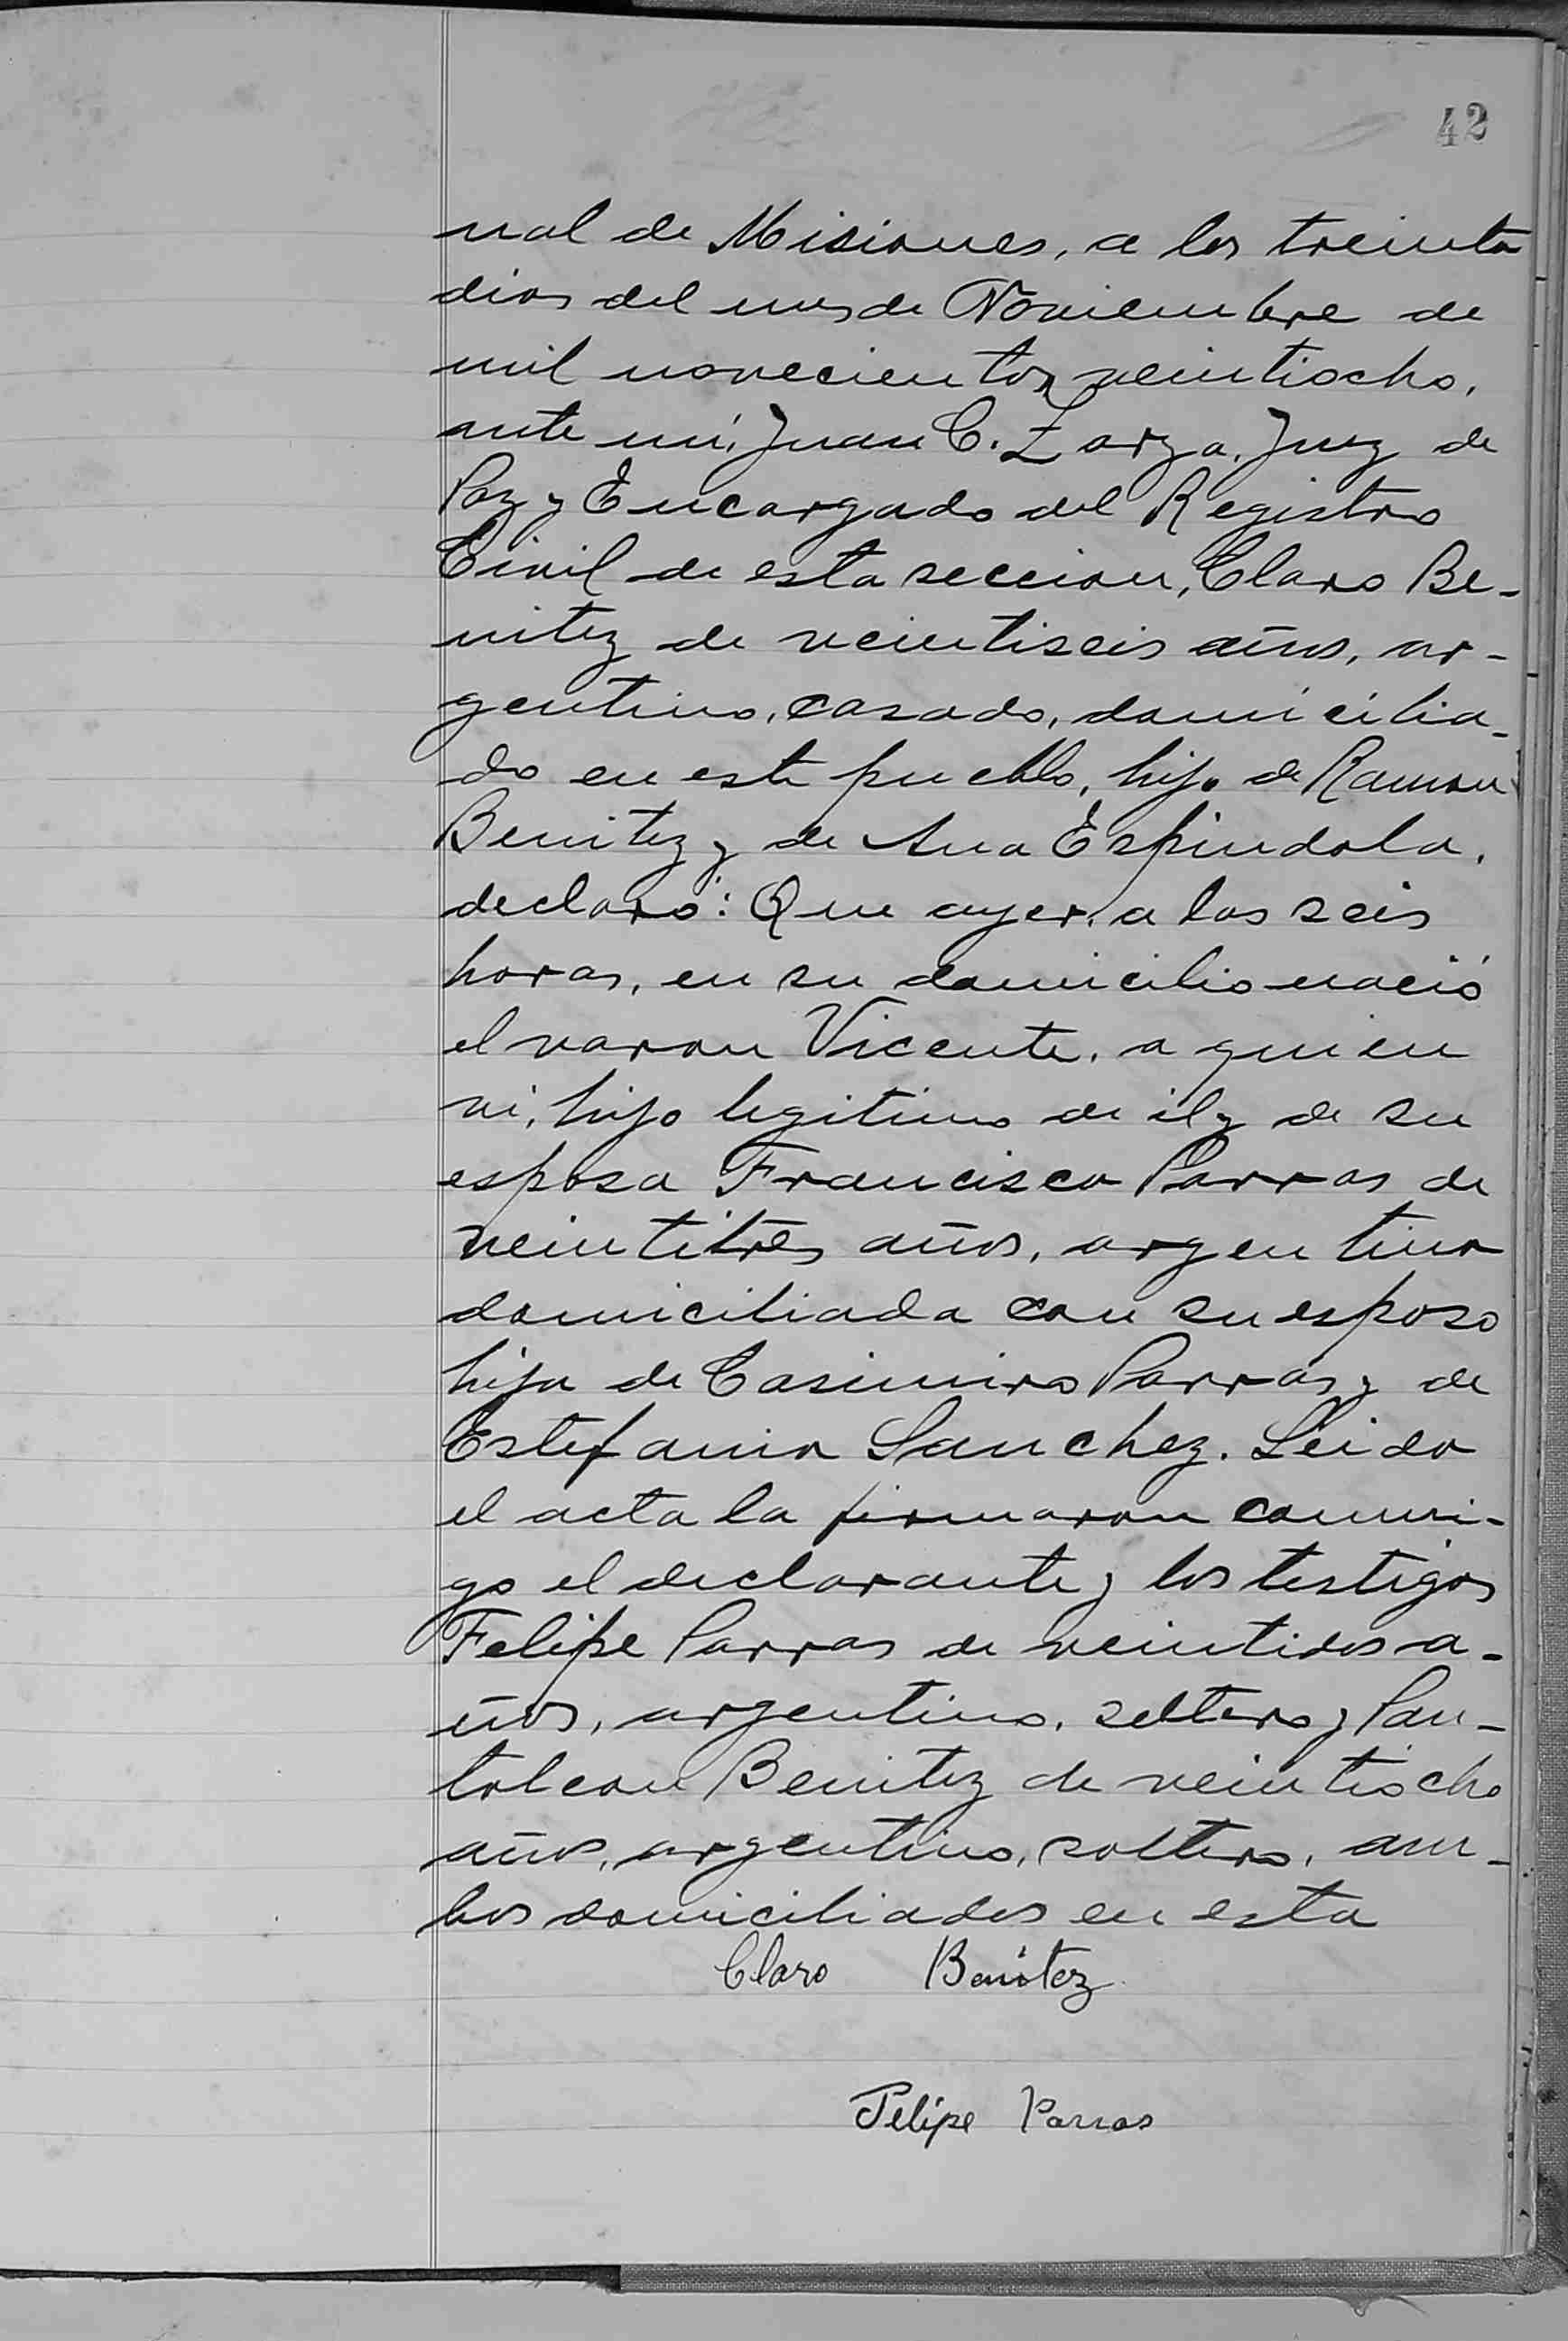 42
nal de Misiones, a los treinta
dias del mes de Noviembre de
mil novecientos veintiocho,
ante mí, Juan C. Zarza, Juez de
Paz y Encargado del Registro
Civil de esta seccion, Claro Be-
nitez de veintiseis años, ar-
gentino, casado, domicilia-
do en este pueblo, hijo de Ramon
Benitez y de Ana Espindola,
declaró: Que ayer, a las seis
horas, en su domicilio nació
el varon Vicente, a quien
vi, hijo legitimo de il y de su
esposa Francisca Parras de
veintitrés años, argentina
domiciliada con su esposo
hija de Casimiro Parras y de
Estefania Sanchez. Leida
el acta la firmaron conmi-
go el declarante y los testigos
Felipe Parras de veintidos a-
ños, argentino, soltero y Pan-
taleon Benitez de veintiocho
años, argentino, soltero, am-
bos domiciliados en esta
Claro Benitez
Felipe Parras